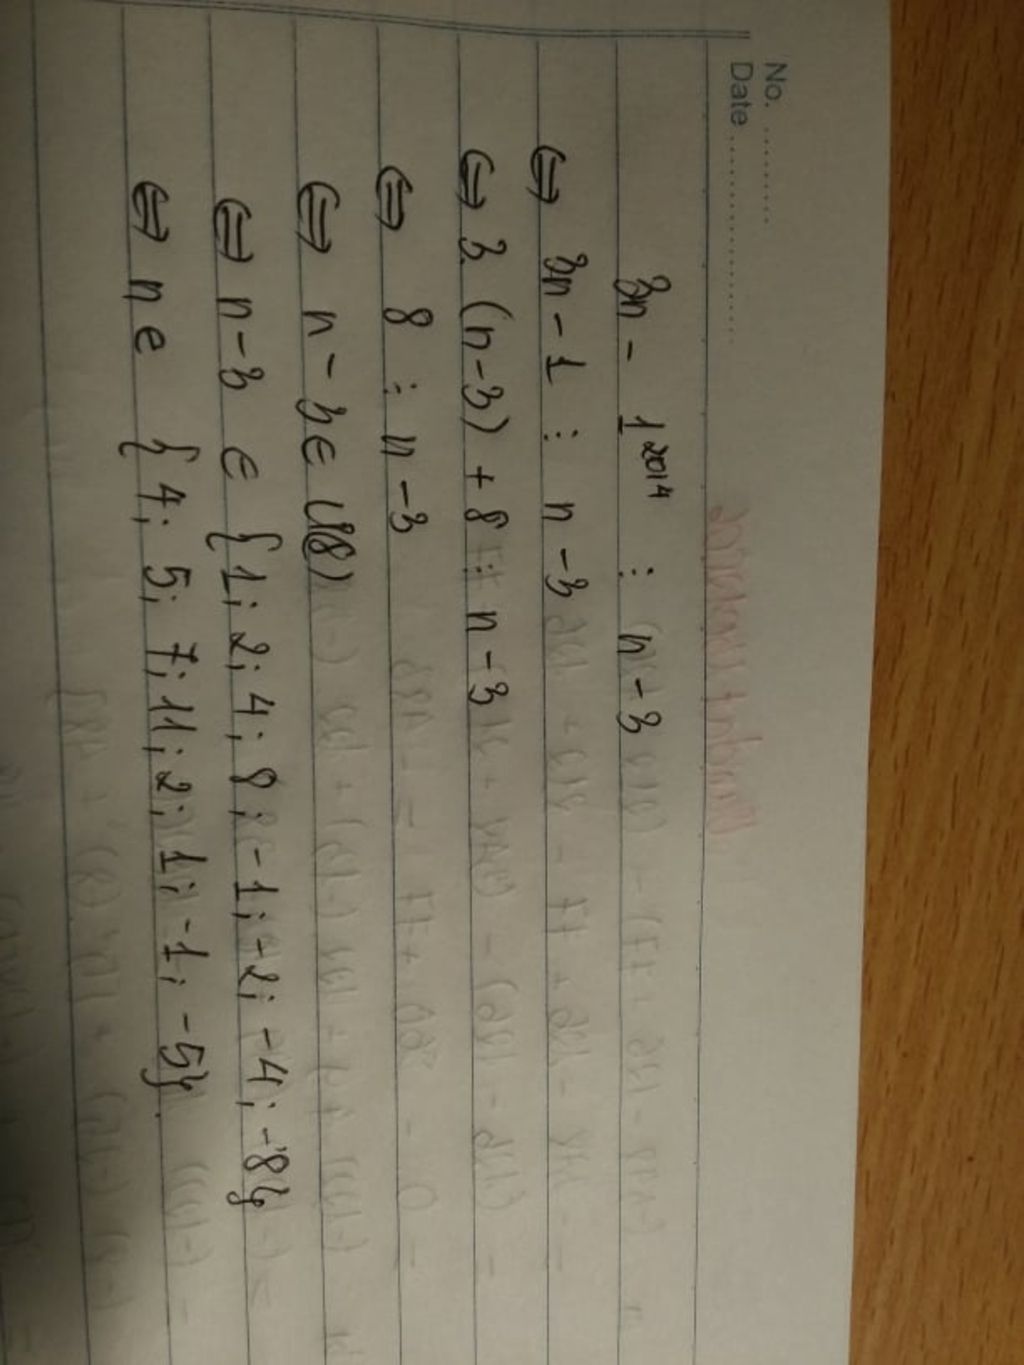 No. ..........
Date ......................
3n - 1²⁰¹⁴ ⋮ n - 3
⇔ 3n - 1 ⋮ n - 3
⇔ 3. (n - 3) + 8 ⋮ n - 3
⇔ 8 ⋮ n - 3
⇔ n - 3 ∈ (8)
⇔ n - 3 ∈ {1; 2; 4; 8; -1; -2; -4; -8}
⇔ n ∈ {4; 5; 7; 11; 2; 1; -1; -5}.